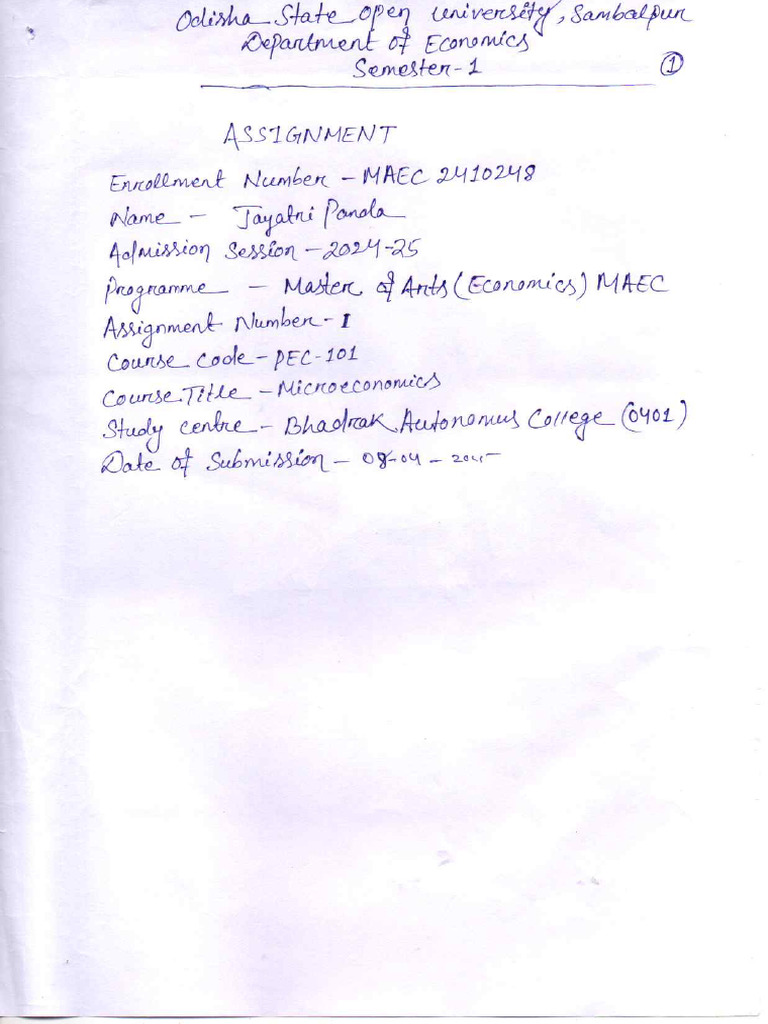 Odisha State Open University, Sambalpur
Department of Economics
Semester-1
①
ASSIGNMENT
Enrollment Number - MAEC 2410248
Name - Jayatri Panda
Admission Session - 2024-25
Programme - Master of Arts (Economics) MAEC
Assignment Number - I
Course Code - PEC-101
Course Title - Microeconomics
Study centre - Bhadrak Autonomus College (0401)
Date of Submission - 08-04-